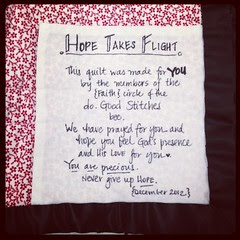 Hope Takes Flight.
This quilt was made for YOU
by the members of the
{Faith} circle of the
do. Good Stitches
bee.
We have prayed for you and
hope you feel God's presence
and His love for you ♥
You are precious.
Never give up HOPE.
{December 2012}